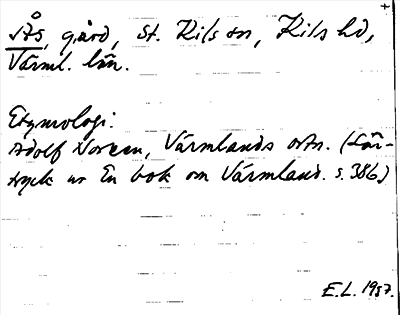 Ås, gård, St. Kils sn, Kils hd,
Värml. län.
Etymologi:
Adolf Noreen, Värmlands ortn. (Sär-
tryck ur En bok om Värmland. s. 386)
E.L. 1937.